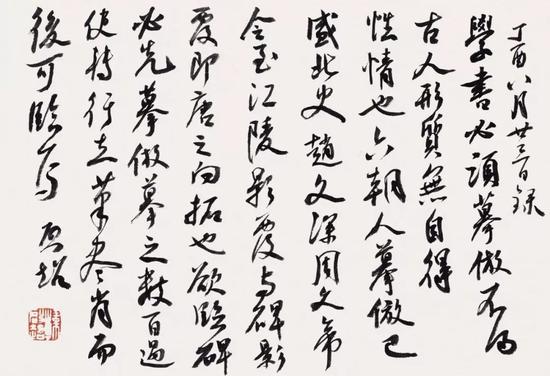 丁酉八月廿三日錄
學書必須摹倣不得
古人形質無自得
性情也六朝人摹倣已
盛北史趙文深周文帝
令至江陵影覆寺碑影
覆即唐之向拓也欲臨碑
必先摹倣摹之數百過
使轉行立筆盡肖而
後可臨焉